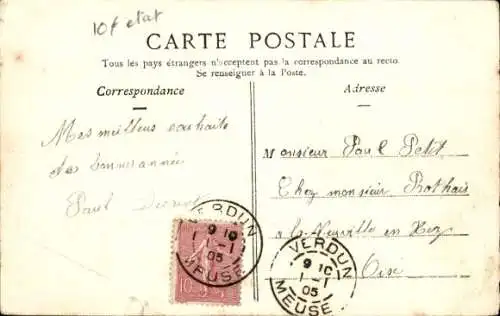 10f etat
CARTE POSTALE
Tous les pays étrangers n'acceptent pas la correspondance au recto.
Se renseigner à la Poste.
Correspondance
Adresse
Mes meilleurs souhaits
de bonne année
Paul
Monsieur Paul Petit
Chez monsieur Rothais
a la Neuville en Hez
Oise
VERDUN
9 10
1 - 1
05
MEUSE
10
VERDUN
9 10
1 - 1
05
MEUSE